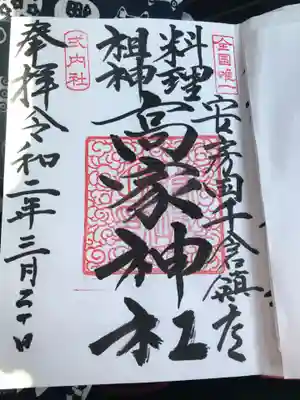 全国唯一
安房国千倉鎮座
料理
祖神
高家神社
式内社
奉拝令和二年三月二十日